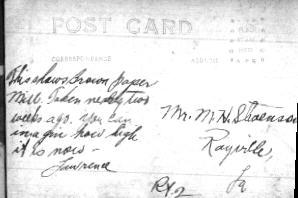 POST CARD
CORRESPONDENCE
ADDRESS
This shows brown paper
Mill. Taken nearly two
weeks ago. You can
imagin how high
it is now -
Lawrence
Mr. M. H. Stevenson
Rayville,
La